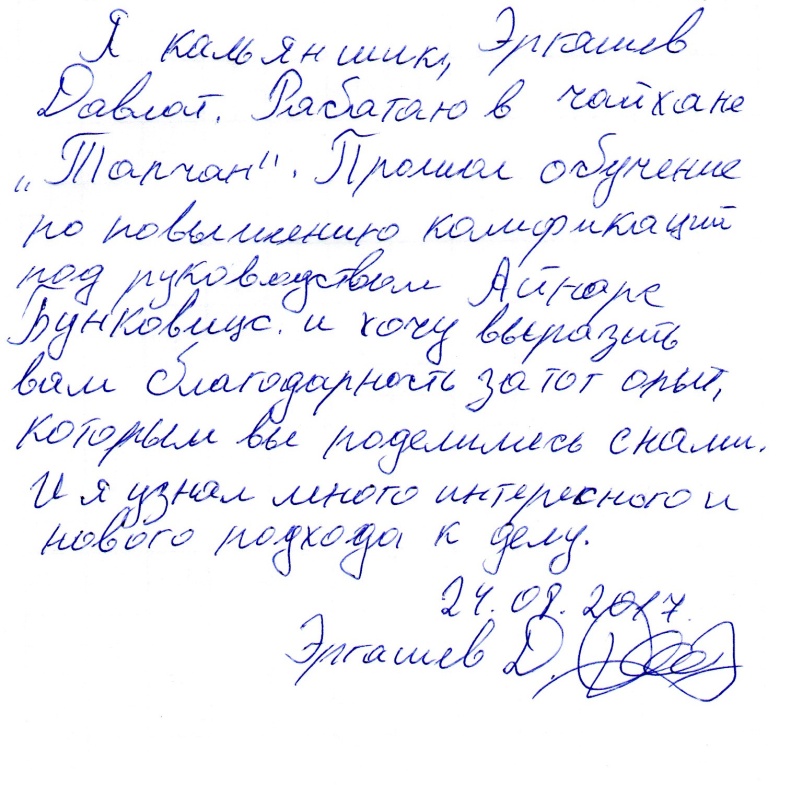 Я кальянщик, Эргашев
Давлат. Работаю в чайхане
„Тапчан". Прошол обучение
по повышению калификаций
под руководством Айнарс
Бунковицс. и хочу выразить
вам благодарность за тот опыт,
которым вы поделились с нами.
И я узнал много интересного и
нового подхода к делу.
24.08.2017.
Эргашев Д.